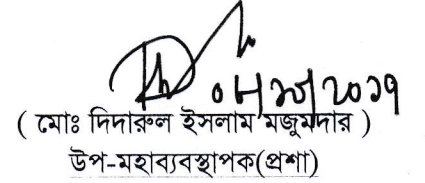 ০৮/১০/২০১৯
( মোঃ দিদারুল ইসলাম মজুমদার )
উপ-মহাব্যবস্থাপক(প্রশা)